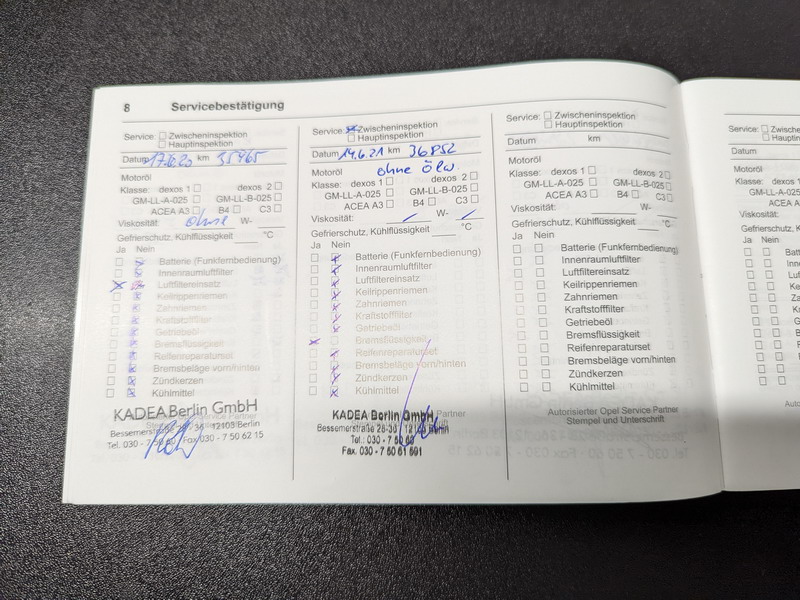 8 Servicebestätigung
Service: Zwischeninspektion
Hauptinspektion
Datum 17.6.20 km 35965
Motoröl
Klasse: dexos 1 dexos 2
GM-LL-A-025 GM-LL-B-025
ACEA A3 B4 C3
Viskosität: ohne W-
Gefrierschutz, Kühlflüssigkeit °C
Ja Nein
Batterie (Funkfernbedienung)
Innenraumluftfilter
Luftfiltereinsatz
Keilrippenriemen
Zahnriemen
Kraftstofffilter
Getriebeöl
Bremsflüssigkeit
Reifenreparaturset
Bremsbeläge vorn/hinten
Zündkerzen
Kühlmittel
KADEA Berlin GmbH
Service Partner
Bessemerstraße 12103 Berlin
Tel.: 030 - 7 Fax 030 - 7 50 62 15
Service: Zwischeninspektion
Hauptinspektion
Datum 14.6.21 km 36852
Motoröl ohne Ölw
Klasse: dexos 1 dexos 2
GM-LL-A-025 GM-LL-B-025
ACEA A3 B4 C3
Viskosität: W-
Gefrierschutz, Kühlflüssigkeit °C
Ja Nein
Batterie (Funkfernbedienung)
Innenraumluftfilter
Luftfiltereinsatz
Keilrippenriemen
Zahnriemen
Kraftstofffilter
Getriebeöl
Bremsflüssigkeit
Reifenreparaturset
Bremsbeläge vorn/hinten
Zündkerzen
Kühlmittel
KADEA Berlin GmbH
Partner
Bessemerstraße 28-30 12103 Berlin
Tel.: 030 - 7 50 60
Fax. 030 - 7 50 61 591
Service: Zwischeninspektion
Hauptinspektion
Datum km
Motoröl
Klasse: dexos 1 dexos 2
GM-LL-A-025 GM-LL-B-025
ACEA A3 B4 C3
Viskosität: W-
Gefrierschutz, Kühlflüssigkeit °C
Ja Nein
Batterie (Funkfernbedienung)
Innenraumluftfilter
Luftfiltereinsatz
Keilrippenriemen
Zahnriemen
Kraftstofffilter
Getriebeöl
Bremsflüssigkeit
Reifenreparaturset
Bremsbeläge vorn/hinten
Zündkerzen
Kühlmittel
Autorisierter Opel Service Partner
Stempel und Unterschrift
Service: Zwischen
Hauptins
Datum
Motoröl
Klasse: dexos 1
GM-LL-A-025
ACEA A3
Viskosität:
Gefrierschutz, K
Ja Nein
Batt
Inne
Luf
Ke
Za
Kr
G
Auto